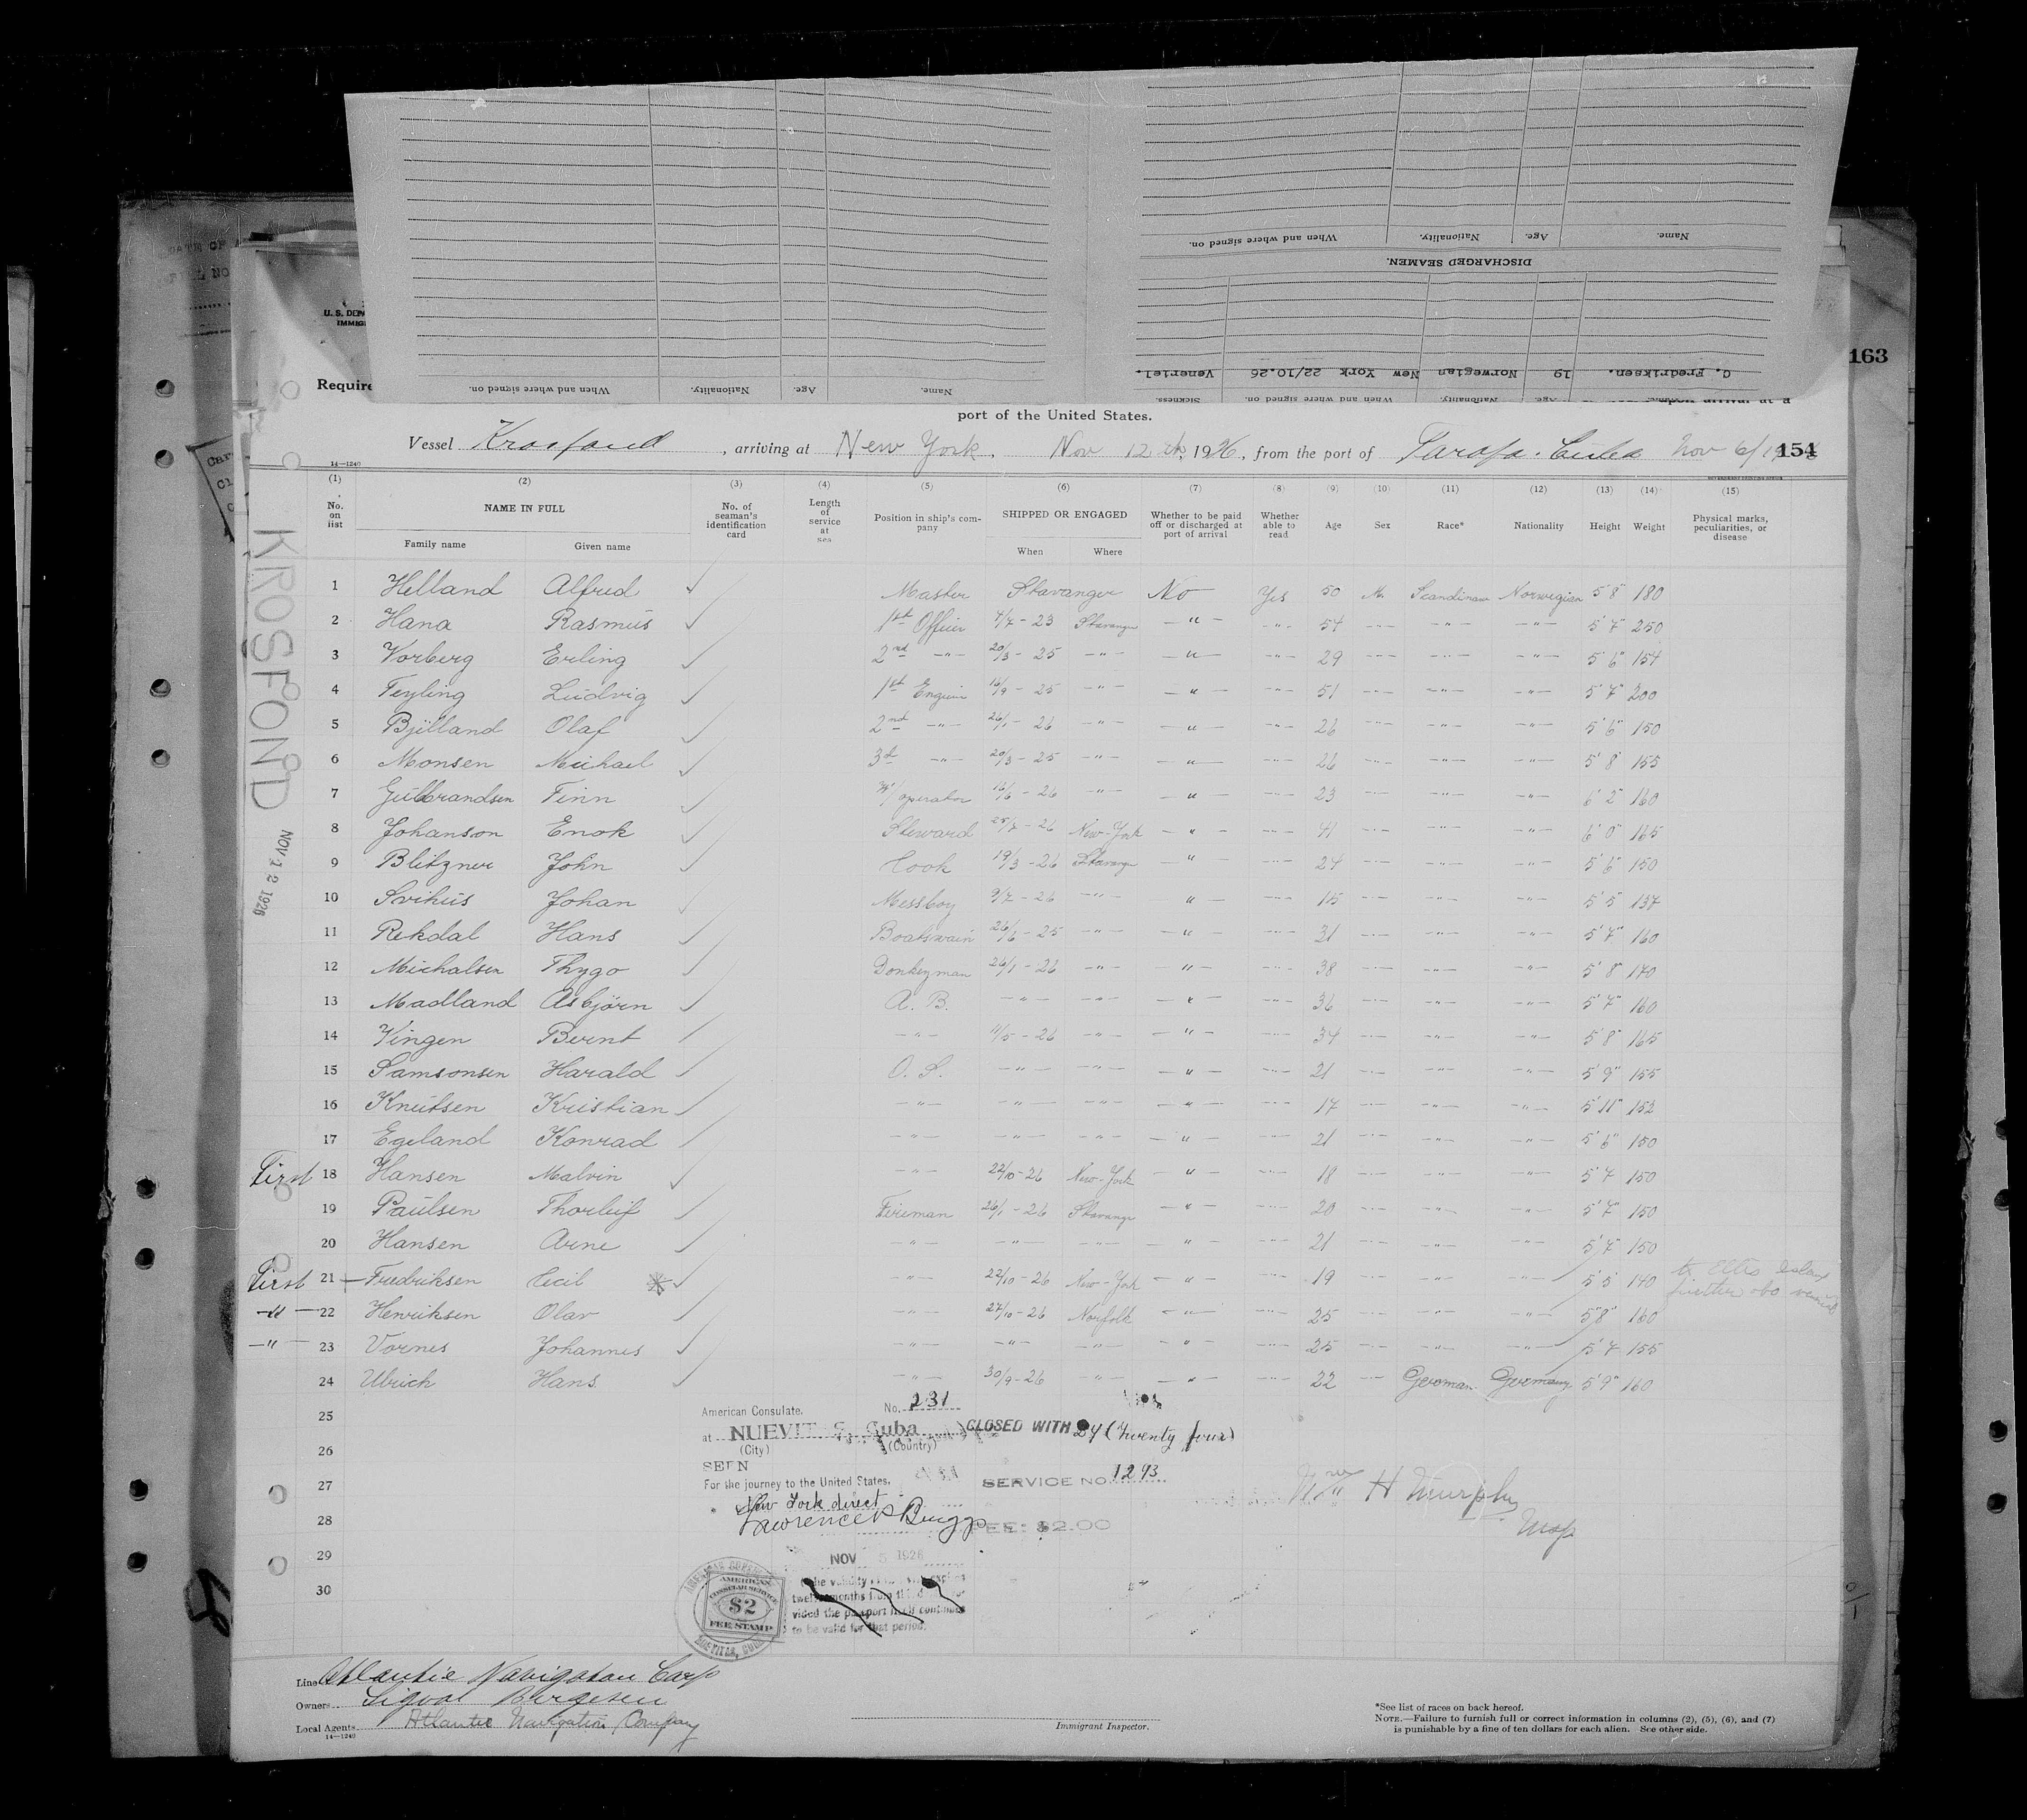 Name. Age. Nationality. When and where signed on.
DISCHARGED SEAMEN.
C. Fredriksen. 19 Norwegian New York 22/10.26 Veneriel.
Name. Age. Nationality. When and where signed on. Sickness.
Name. Age. Nationality. When and where signed on.
163
U. S. DEPA
IMMIG
Require
upon arrival at a
port of the United States.
Vessel Krosfond, arriving at New York, Nov 12th, 1926, from the port of Tarafa. Cuba Nov 6/19
154
14—1240
(1) (2) (3) (4) (5) (6) (7) (8) (9) (10) (11) (12) (13) (14) (15)
No. on list NAME IN FULL No. of seaman's identification card Length of service at sea Position in ship's company SHIPPED OR ENGAGED Whether to be paid off or discharged at port of arrival Whether able to read Age Sex Race* Nationality Height Weight Physical marks, peculiarities, or disease
Family name Given name When Where
KROSFOND
NOV 12 1926
1 Helland Alfred ✓ Master Stavanger No Yes 50 M. Scandinav Norwegian 5'8" 180
2 Hana Rasmus ✓ 1st Officer 4/7-23 Stavanger -"- -"- 54 -"- -"- -"- 5'7" 250
3 Vorberg Erling ✓ 2nd -"- 20/3-25 -"- -"- -"- 29 -"- -"- -"- 5'6" 154
4 Feyling Ludvig ✓ 1st Engin 16/9-25 -"- -"- -"- 51 -"- -"- -"- 5'7" 200
5 Bjelland Olaf ✓ 2nd -"- 26/1-26 -"- -"- -"- 26 -"- -"- -"- 5'6" 150
6 Monsen Michael ✓ 3d -"- 20/3-25 -"- -"- -"- 26 -"- -"- -"- 5'8" 155
7 Gulbrandsen Finn ✓ W/operator 16/6-26 -"- -"- -"- 23 -"- -"- -"- 6'2" 160
8 Johanson Enok ✓ Steward 25/7-26 New-York -"- -"- 41 -"- -"- -"- 6'0" 165
9 Blitzner John ✓ Cook 19/3-26 Stavanger -"- -"- 24 -"- -"- -"- 5'6" 150
10 Svihus Johan ✓ Messboy 9/7-26 -"- -"- -"- 15 -"- -"- -"- 5'5" 137
11 Rekdal Hans ✓ Boatswain 26/6-25 -"- -"- -"- 31 -"- -"- -"- 5'7" 160
12 Michalsen Thygo ✓ Donkeyman 26/1-26 -"- -"- -"- 38 -"- -"- -"- 5'8" 170
13 Madland Asbjörn ✓ A. B. -"- -"- -"- -"- 36 -"- -"- -"- 5'7" 160
14 Vingen Bernt ✓ -"- 11/5-26 -"- -"- -"- 34 -"- -"- -"- 5'8" 165
15 Samsonsen Harald ✓ O. S. -"- -"- -"- -"- 21 -"- -"- -"- 5'9" 155
16 Knutsen Kristian ✓ -"- -"- -"- -"- -"- 17 -"- -"- -"- 5'11" 152
17 Egeland Konrad ✓ -"- -"- -"- -"- -"- 21 -"- -"- -"- 5'6" 150
First 18 Hansen Malvin ✓ -"- 22/10-26 New-York -"- -"- 18 -"- -"- -"- 5'7 150
19 Paulsen Thorleif ✓ Fireman 26/1-26 Stavanger -"- -"- 20 -"- -"- -"- 5'7" 150
20 Hansen Arne ✓ -"- -"- -"- -"- -"- 21 -"- -"- -"- 5'7" 150
First 21 Fredriksen Cecil * ✓ -"- 22/10-26 New-York -"- -"- 19 -"- -"- -"- 5'5 140
-"- 22 Henriksen Olav ✓ -"- 27/10-26 Norfolk -"- -"- 25 -"- -"- -"- 5'8" 160
-"- 23 Vornes Johannes ✓ -"- -"- -"- -"- -"- 25 -"- -"- -"- 5'7 155
24 Ulrich Hans. ✓ -"- 30/9-26 -"- -"- -"- 22 -"- German Germany 5'9" 160
25
26
27
28
29
30
American Consulate. No. 231
at NUEVITAS, Cuba CLOSED WITH 24 (Twenty four)
(City) (Country)
SEEN
For the journey to the United States. SERVICE NO. 1293
New York direct
Lawrence Briggs FEE: $2.00
Wm H Murphy
NOV 5 1926
The validity expires
twelve months from
vided the passport itself continues
to be valid for that period.
AMERICAN
CONSULAR SERVICE
$2
FEE STAMP
NUEVITAS, CUBA
Line Atlantic Navigation Corp
Owners Sigval Bergesen
Local Agents Atlantic Navigation Company
14—1240
Immigrant Inspector.
*See list of races on back hereof.
NOTE.—Failure to furnish full or correct information in columns (2), (5), (6), and (7)
is punishable by a fine of ten dollars for each alien. See other side.